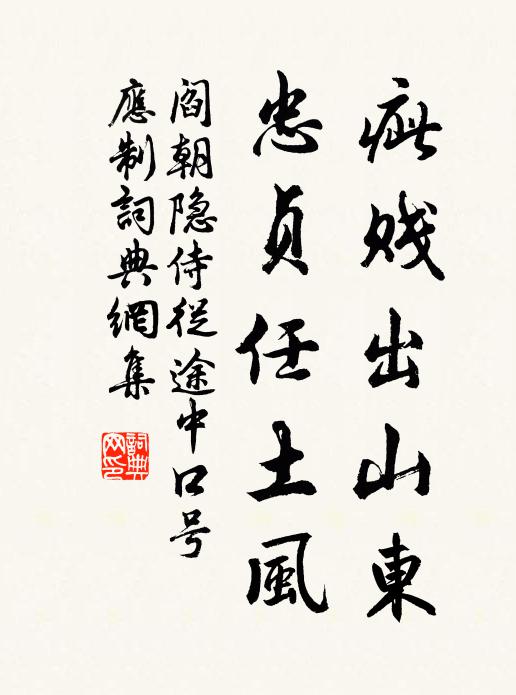 疵贱出山東
忠貞任土風
阎朝隐侍從途中口号
應制詞典網集
詞典网印